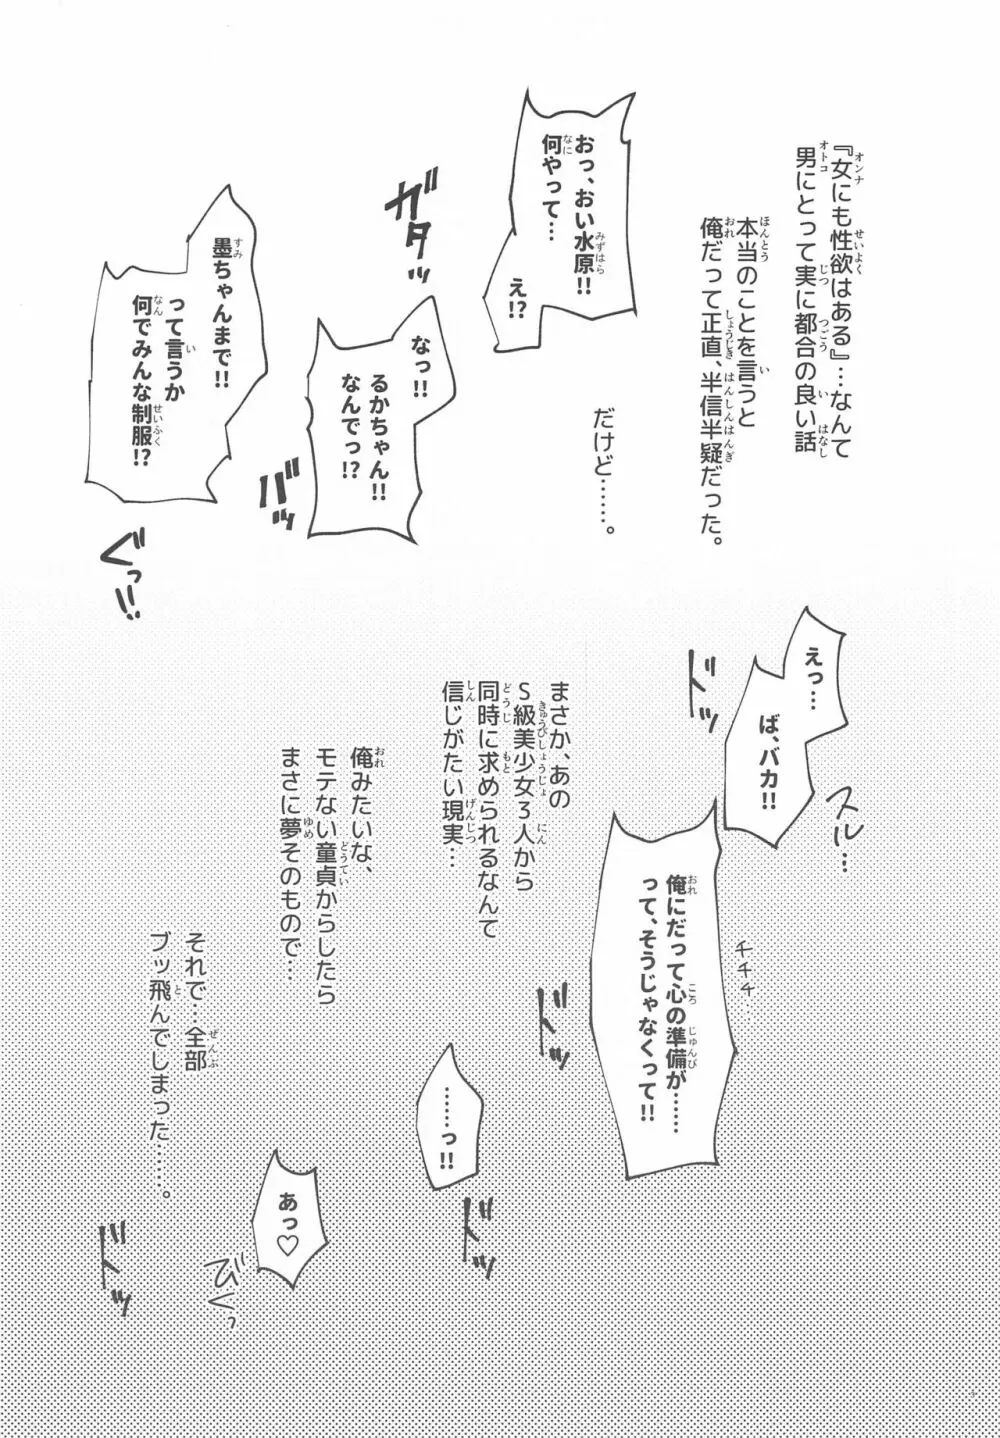 『女にも性欲はある』…なんて
男にとって実に都合の良い話
本当のことを言うと
俺だって正直、半信半疑だった。
だけど……。
おっ、おい水原!!
何やって…
え!?
ガタッ
なっ!!
るかちゃん!!
なんでっ!?
バッ
墨ちゃんまで!!
って言うか
何でみんな制服!?
ぐっ!!
えっ…
ば、バカ!!
スル…
ドッ
俺にだって心の準備が……
って、そうじゃなくって!!
チチチ…
まさか、あの
S級美少女3人から
同時に求められるなんて
信じがたい現実…
ドッ
俺みたいな、
モテない童貞からしたら
まさに夢そのもので…
……っ!!
ドッ
それで…全部
ブッ飛んでしまった……。
あっ♡
びくっ
ドッ